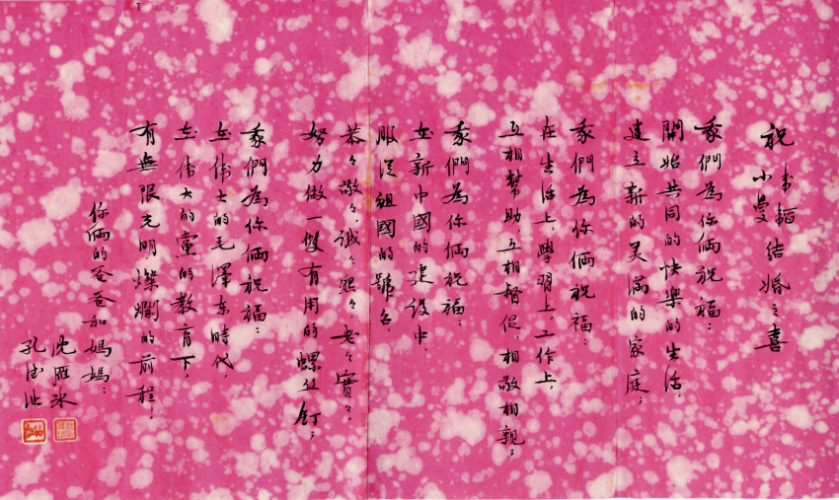 祝韦韬小曼结婚之喜
我們為你倆祝福：
開始共同的快樂的生活，
建立新的美滿的家庭；
我們為你倆祝福：
在生活上，學習上工作上，
互相幫助，互相督促，相敬相親；
我們為你倆祝福：
在新中國的建设中，
服從祖國的號召
恭々敬々，诚々恳々，老々實々，
努力做一雙有用的螺丝釘；
我們為你倆祝福：
在偉大的毛澤东時代，
在偉大的黨的教育下，
有無限光明燦爛的前程！
你倆的爸爸和媽媽：
沈雁冰
孔德沚